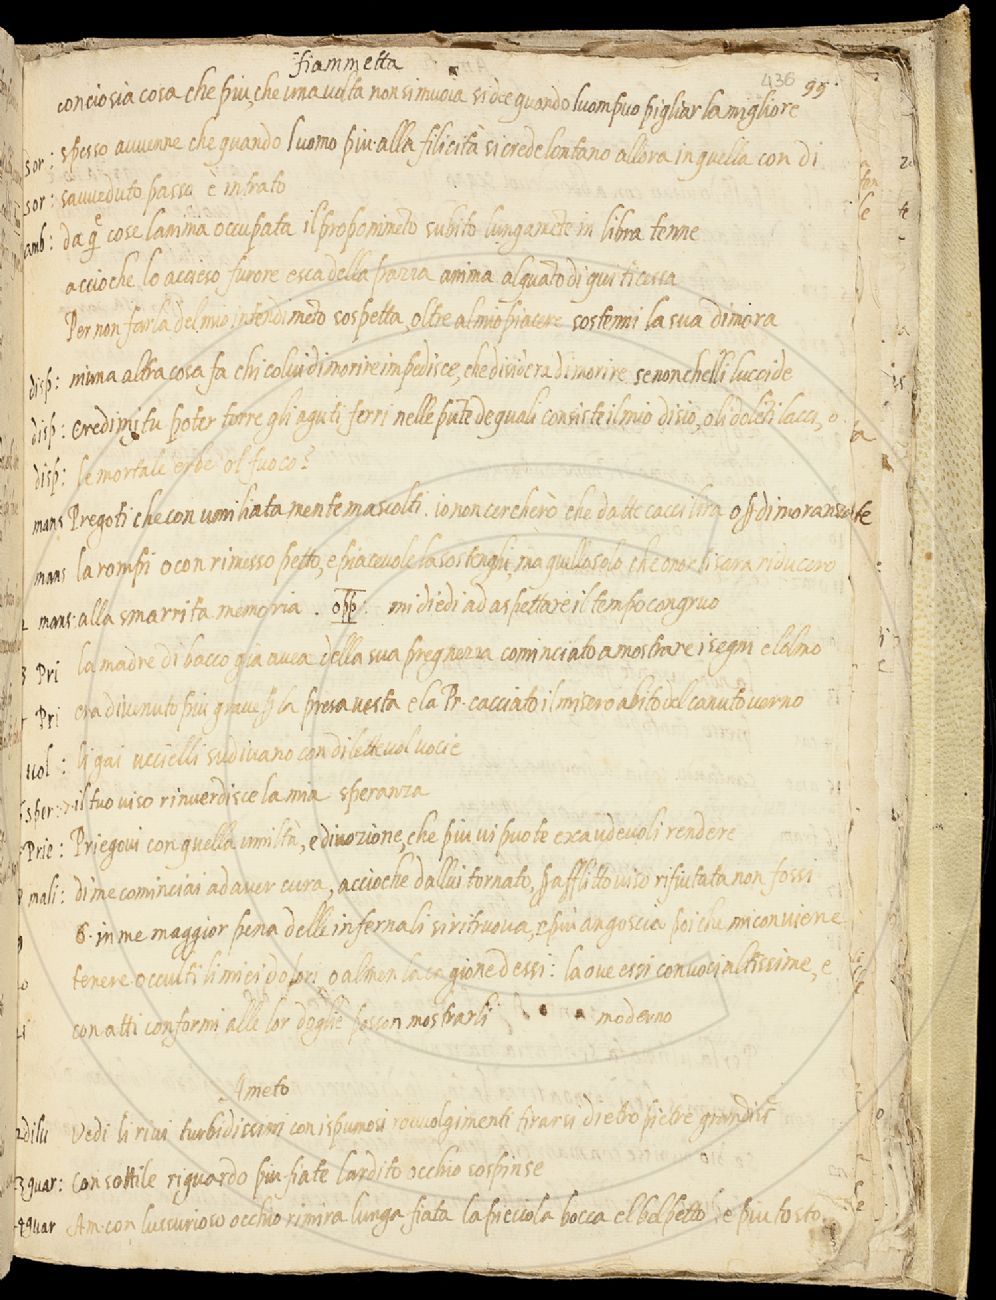 fiammetta
436 99
conciosia cosa che piu, che una volta non si muoia si dee quando luom puo pigliar la migliore
sor: spesso avvenne che quando l uomo piu alla filicità si crede lontano allora in quella con di
sor: savveduto passo è intrato
amb: da q̃ cose lanima occupata il proponimẽto subito lungamẽte in libra tenne
accioche lo acceso furore esca della pazza anima alquãto di qui ti cessa
Per non farla del mio intendimẽto sospetta, oltre al mio piacere sostenni la sua dimora
disp: niuna altra cosa fa chi colui di morire impedisce, che disidera di morire se non chelli luccide
disp: credimi tu poter torre gli aguti ferri nelle pũte de quali consiste il mio disio, o li dolẽti lacci, o
disp: le mortale erbe ol fuoco?
mans Pregoti che con umiliata mente mascolti. io non cercherò che da tte cacci lira
mans la rompi o con rimesso petto, e piacevole la sostenghi, ma quella solo che onor li sara riducero
mans: alla smarrita memoria. opp: mi diedi ad aspettare il tempo congruo
Pri la madre di bacco gia avea della sua pregnezza cominciato a mostrare i segni e lolmo
Pri era divenuto piu grave p̱ la presa vesta e la Pr. cacciato il misero abito del canuto verno
ucol: li gai uccielli sudivano con dilettevol vocie
sper: il tuo viso rinverdisce la mia speranza
Prie: Priegovi con quella umiltà, e divozione, che piu vi puote exaudevoli rendere
mali: di me cominciai ad aver cura, accioche dallui tornato, p̱ afflitto viso rifiutata non fossi
6. in me maggior pena delle infernali si ritruova, e piu angoscia poi che mi conviene
tenere occulti li miei dolori o almen la cagione dessi: la ove essi con voci altissime, e
con atti conformi alle lor doglie posson mostrarli moderno
Ameto
dilu Vedi li rivi turbidissimi con ispumosi rovvolgimenti tirarsi dietro pietre grandisĩ
guar: Con sottile riguardo piu fiate lardito occhio sospinse
guar Am. con lussurioso occhio rimira lunga fiata la picciola bocca el bel petto, e piu tosto